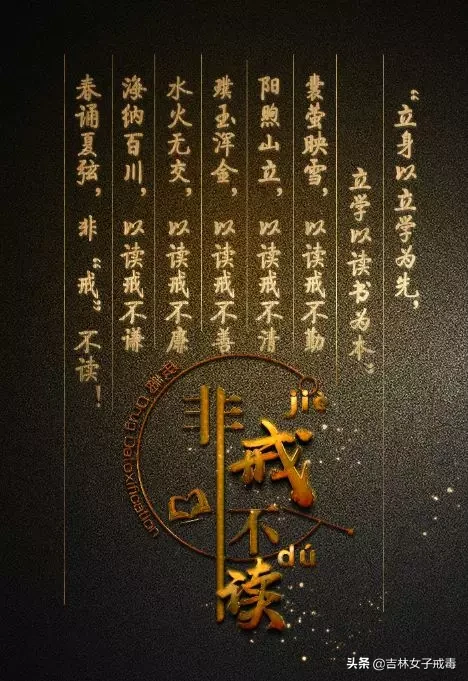 “立身以立学为先，
立学以读书为本”
囊萤映雪，以读戒不勤
阳煦山立，以读戒不清
璞玉浑金，以读戒不善
水火无交，以读戒不廉
海纳百川，以读戒不谦
春诵夏弦，非“戒”不读！
非戒不读
jiè
dú
头条 @吉林女子戒毒